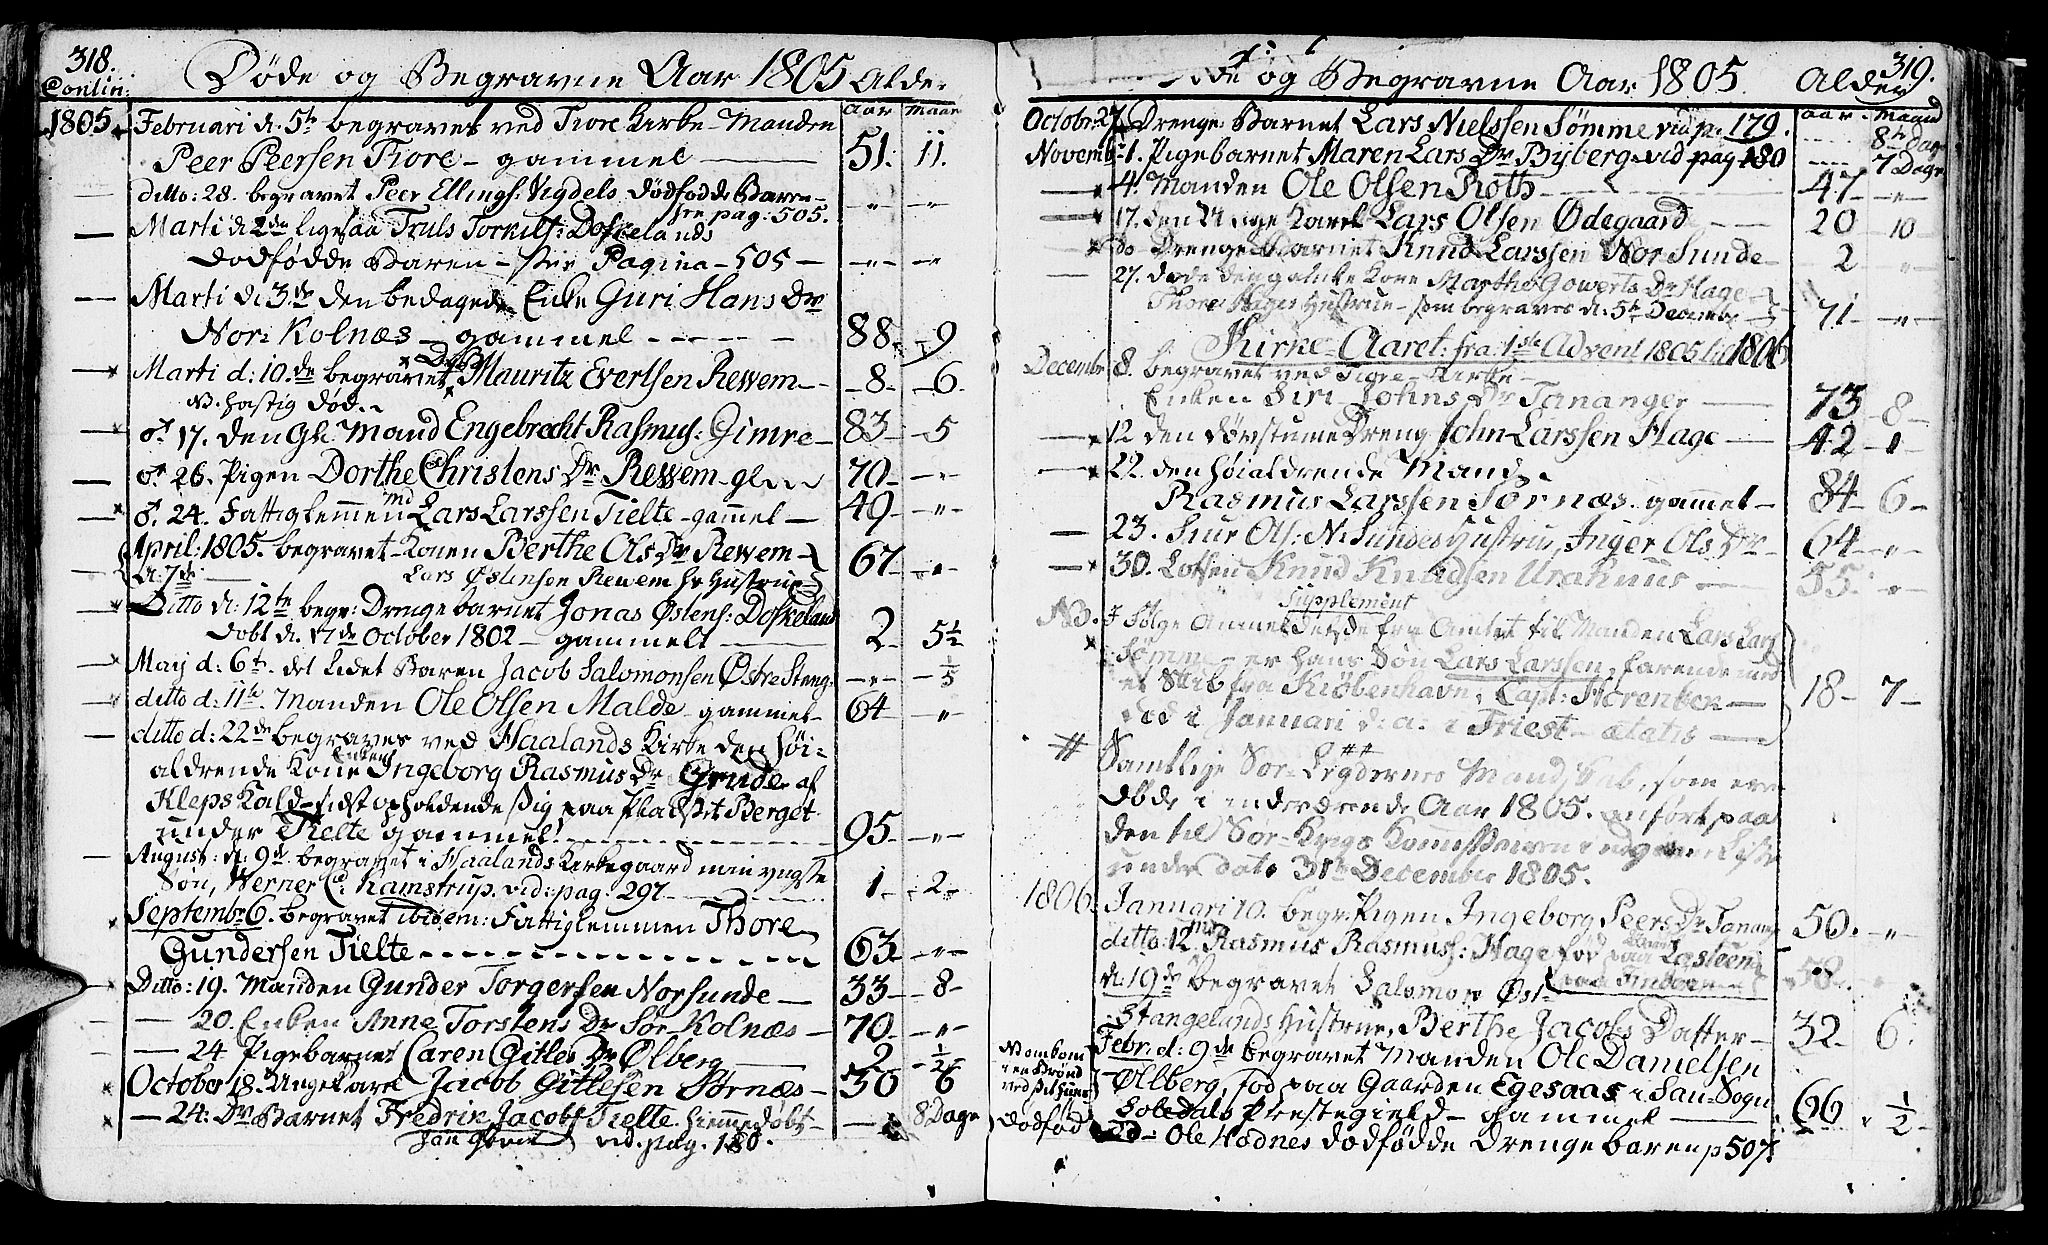 318.
Contin:
Døde og Begravne Aar 1805 Alder
Aar Maan
1805. Februari d. 5te begravet ved Tiore Kirke Manden
Peer Peersen Tiore - gammel 51. 11.
ditto: 28. begravet Peer Ellings: Vigdels dødfødde Barn
pag: 505.
Marti d. 2de ligesaa Truls Torkils: Doskelands
dødfødde Barn - Pagina - 505 -
Marti d. 3de den bedagede Enke Guri Hans Dr
Nor: Kolnæs - gammel 88. 9
Marti d: 10.de begravet Mauritz Evertsen Rewem 8 - 6.
NB. hastig død.
17. den Gl. Mand Engebrecht Rasmus: Gimre - 83 - 5
26. Pigen Dorthe Christens Dr Rewem 70 -
24. Fattiglemmen Lars Larssen Tielte - gammel - 49 -
April: 1805. begravet - Konen Berthe Ols Dr Rewem - 67 -
d. 7de Lars Østensen Rewem Hustrue
Ditto d: 12te begr: Drengebarnet Jonas Østens: Doskeland
døbt d. October 1802 - gammelt 2 - 5½
Maij d: 6te det lidet Barn Jacob Salomonsen Østre Stang: 1/5
ditto d: 11te Manden Ole Olsen Malde - gammel - 64 -
ditto d: 22de begraves ved Haalands Kirke den høi-
Enken
aldrende Kone Ingeborg Rasmus Dr Grude af
Kleps Kald - sidst opholdende sig paa Pladset Berget
under Tielte gammel 95 -
August: d: 9de begravet i Haalands Kirkegaard min yngste
Søn, Werner Kamstrup. vid: pag: 297 1 - 2 -
Septembr 6. begravet ibidem: Fattiglemmen Thore
Gundersen Tielte 63 -
Ditto: 19. Manden Gunder Torgersen Norsunde - 33 - 8 -
20. Enken Anne Torstens Dr Sør-Kolnæs - 70 -
24 Pigebarnet Caren Gitles Dr Ølberg 2 - ½
October 18. Ungekarl Jacob Gitlesen Sørnæs - 30 6
24: Dr Barnet Fredrik Jacobs Tielte. hiemmedøbt - 8 Dage
vid. pag. 180.
319.
Døde og Begravne Aar 1805. Alder
Aar. Maaned
Octobr: 27. Drenge Barnet Lars Nielssen Sømme vid p. 179. 8te Dag
Novemb: 1. Pigebarnet Maren Lars Dr Byberg vid pag 180 7 Dage
4. Manden Ole Olsen Roth 47 -
17. den Unge Karl Lars Olsen Ødegaard 20 10
do Drenge Barnet Knud Larssen Nor Sunde 2
27. døde den gamle Kone Marthe Gowerts Dr Hage
Thore Hages Hustrue - som begraves d. 5te Decembr 71 -
Kirke-Aaret: fra 1ste Advent 1805 til 1806
Decembr 8. begravet ved Tiore Kirke
Enken Siri Johns Dr Tananger 73 - 8 -
12 den døvstume Dreng John Larssen Hage 42
22. den høialdrende Mand
Rasmus Larssen Sørnæs. gammel - 84 - 6 -
23. Siur Ols: N: Sundes Hustrue, Inger Ols Dr - 64 -
30. Knud Knudsen 55.
Supplement
NB. I følge Anmeldelse fra Amtet til Manden Lars Lars:
Sømme - er hans Søn Lars Larssen, farende med
et Skib fra Kiøbenhavn, Capt: 18 - 7 -
død i Januari d: a: i Triest - ætatis
# Samtlige Søe-Legdernes Mandskab, som ere
døde i inderværende Aar 1805. anført paa
den til Søe-Krigs Commissairen indgivne Liste
under dato 31te December 1805.
1806. Januari 10. begr: Pigen Ingeborg Peers Dr Tanang: 50. -
ditto: 12 Rasmus Rasmus: Hage fød paa 58.
d: 19de begravet Salomon Øst-
Stangelands Hustrue, Berthe Jacobs Datter - 32 - 6.
Febr: d: 9de begravet Manden Ole Danielsen
NB omkom
i en Brønd
ved sit Huus
Ølberg, fød paa Gaarden Egesaas i Sau-Sogn
Soledals Prestegield - gammel 66 ½
dødfød Ole Hodnes dødfødde Drengebarn p 507.